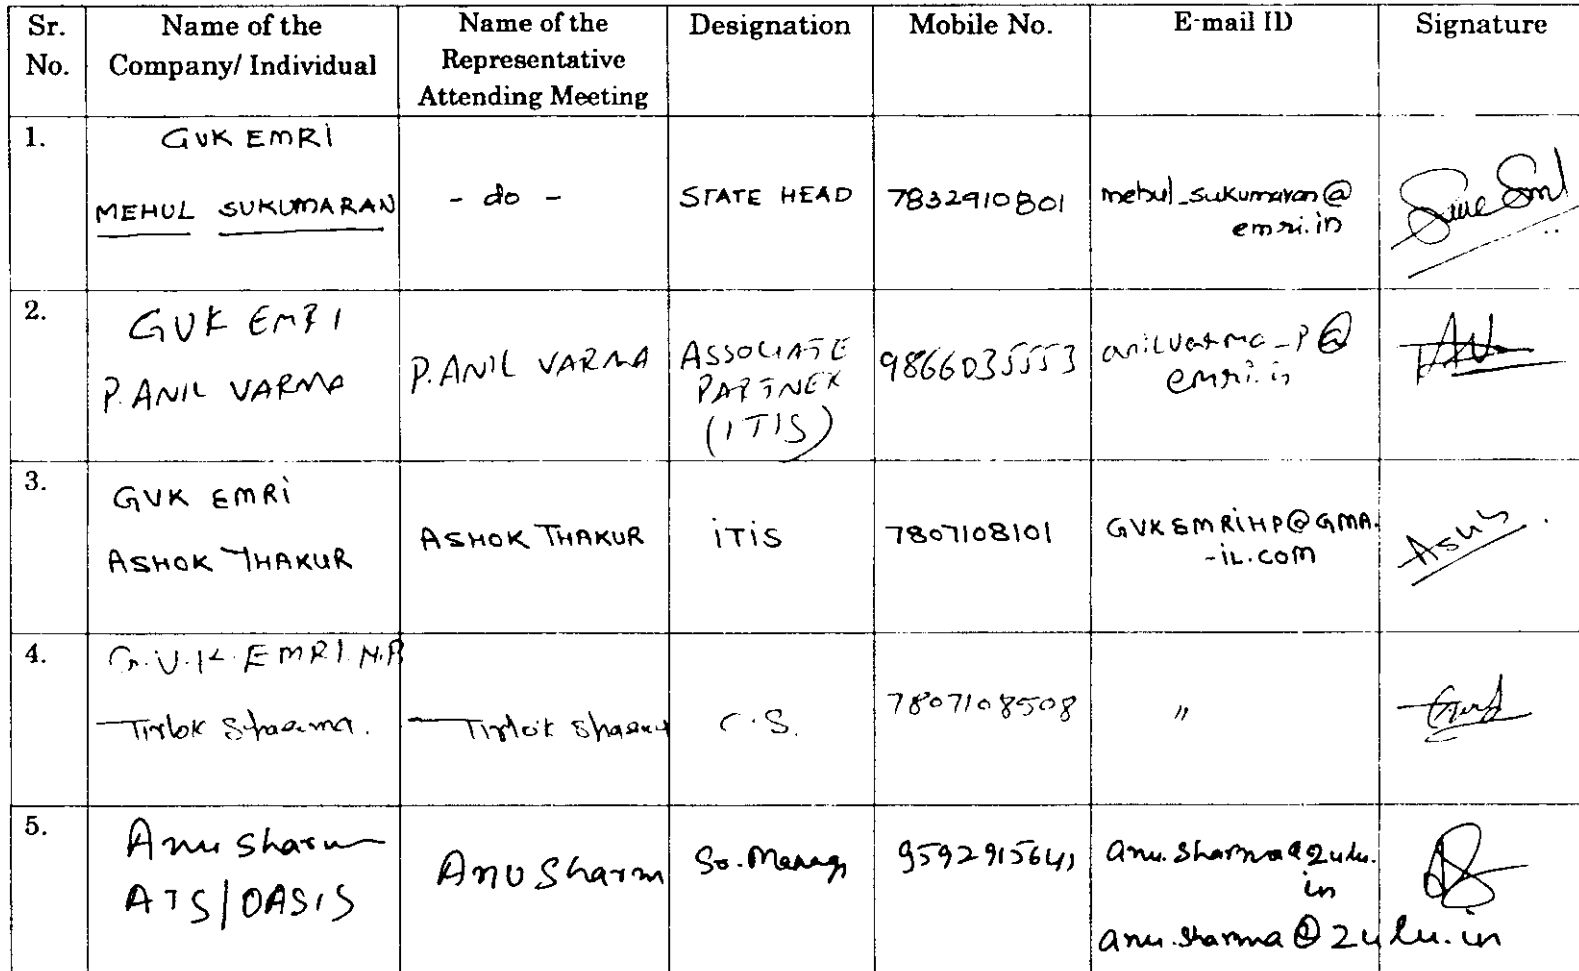 Sr. No.
Name of the Company/ Individual
Name of the Representative Attending Meeting
Designation
Mobile No.
E-mail ID
Signature
1.
GVK EMRI
MEHUL SUKUMARAN
- do -
STATE HEAD
7832910801
mehul_sukumaran@
emri.in
2.
GVK EMRI
P. ANIL VARMA
P. ANIL VARMA
ASSOCIATE
PARTNER
(ITIS)
9866035553
anilvarma_p@
emri.in
3.
GVK EMRI
ASHOK THAKUR
ASHOK THAKUR
ITIS
7807108101
GVKEMRIHP@GMA
-IL.COM
4.
G.V.K. EMRI H.P
Tirlok Sharma.
Tirlok Sharma
C.S.
7807108508
"
5.
Anu Sharma
ATS/OASIS
Anu Sharma
Sr. Manag
9592915641
anu.sharma@zulu.
in
anu.sharma@zulu.in